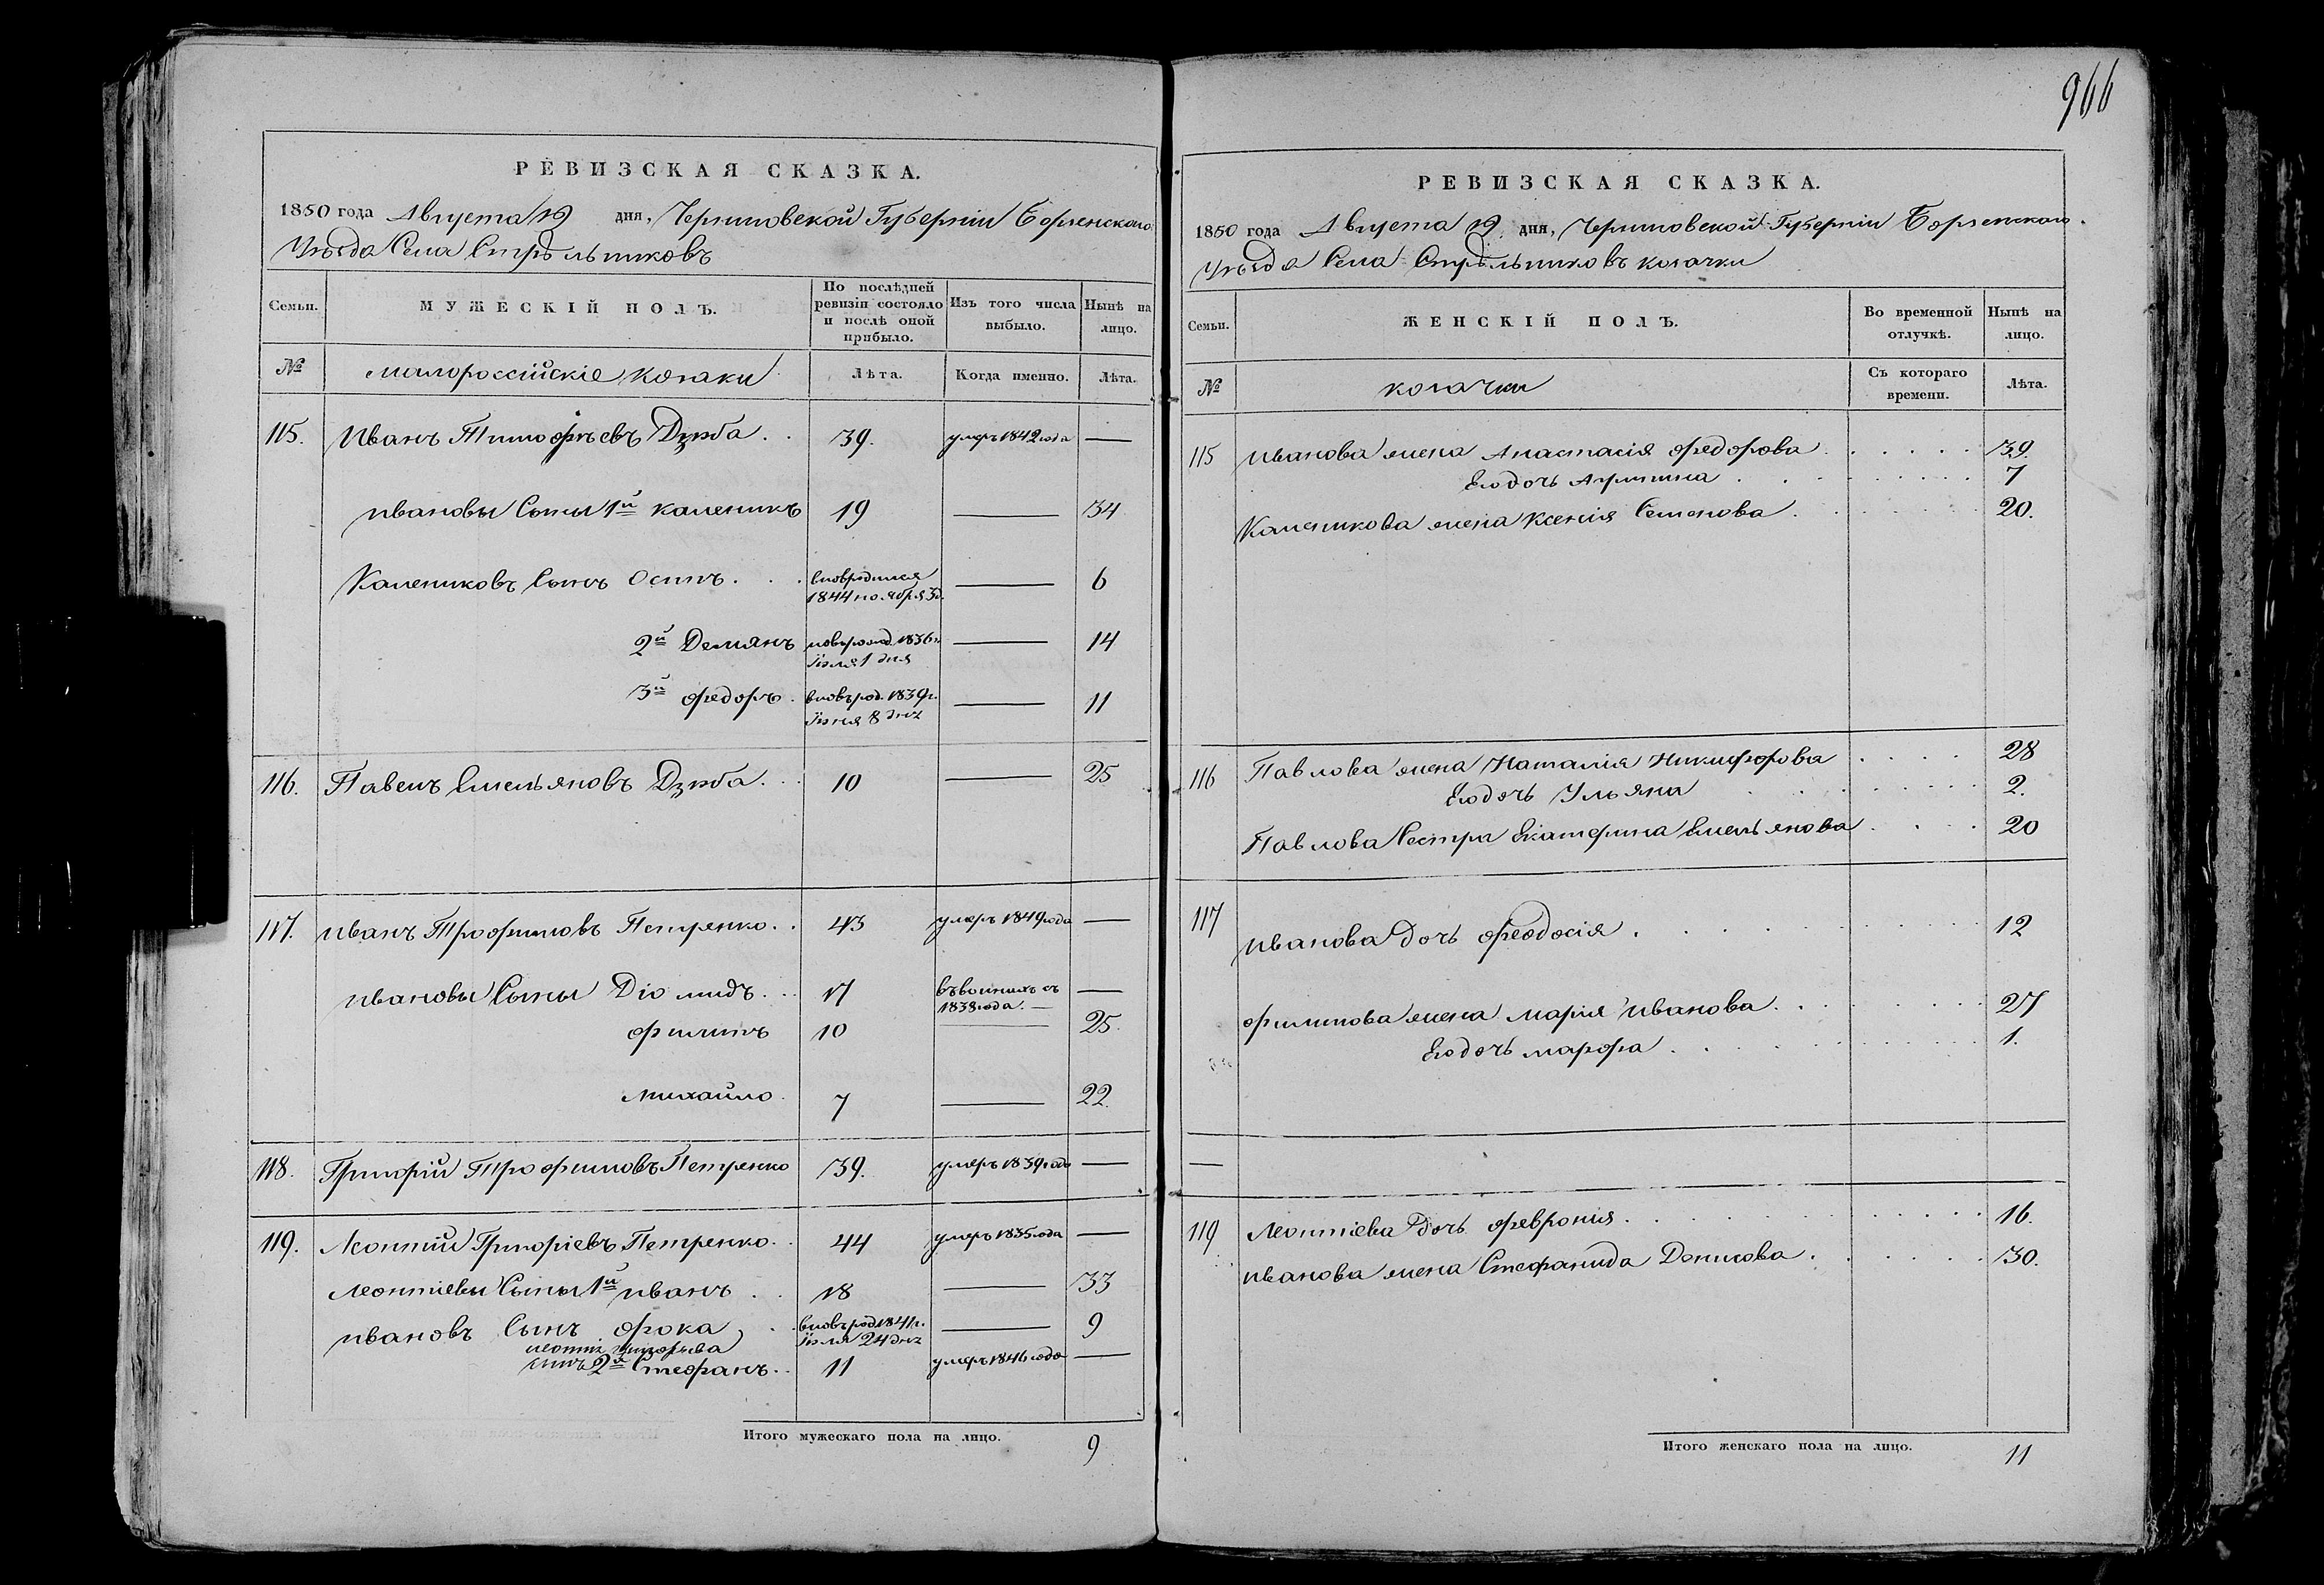 966
РЕВИЗСКАЯ СКАЗКА.
1850 года Августа 19 дня, Черниговской Губерніи Борзенскаго
Уѣзда Села Стрѣльниковъ
Семьи.
МУЖЕСКІЙ ПОЛЪ.
По послѣдней ревизіи состояло и послѣ оной прибыло.
Изъ того числа выбыло.
Нынѣ на лицо.
№ Малороссійскіе козаки Лѣта. Когда именно. Лѣта.
115. Иванъ Тимофѣевъ Дзюба . . 39. умеръ 1842 года —
Ивановы Сыны 1й Каленикъ 19 — 34
Калениковъ Сынъ Осипъ . . . вновьродился 1844 ноября 3д. — 6
2й Демянъ новьрожд. 1836г. Іюля 1 дня — 14
3й Федоръ . вновьрод. 1839г. Іюня 8 дня — 11
116. Павелъ Емельяновъ Дзюба . . . 10 — 25
117. Иванъ Трофимовъ Петренко . . 43 умеръ 1849 года —
Ивановы Сыны Діомидъ . . . 17 въ воинахъ съ 1838 года. —
Филипъ 10 — 25.
Михайло . 7 — 22.
118. Григорій Трофимовъ Петренко 39. умеръ 1839 года —
119. Леонтій Григоріевъ Петренко . . 44 умеръ 1835 года —
Леонтіевы Сыны 1й Иванъ . . 18 — 33
Ивановъ Сынъ Фока . . вновьрод 1841г. Іюля 24 дня — 9
Леонтія Григорьева
сынъ 2й Стефанъ . . 11 умеръ 1846 года —
Итого мужескаго пола на лицо. 9
РЕВИЗСКАЯ СКАЗКА.
1850 года Августа 19 дня, Черниговской Губерніи Борзенскаго
Уѣзда Села Стрѣльниковъ козачки
Семьи.
ЖЕНСКІЙ ПОЛЪ.
Во временной отлучкѣ.
Нынѣ на лицо.
№ козачки Съ котораго времени. Лѣта.
115 Иванова жена Анастасія Федорова . . . . . . 39.
Еюдочь Агрипина . . . . . . . 7
Каленикова жена Ксенія Семенова . . . . . . 20.
116 Павлова жена Наталія Никифорова . . . . 28
Еюдочь Ульяна . . . . . . 2.
Павлова Сестра Екатерина Емельянова . . . 20
117 Иванова дочь Феодосія . . . . . . . . 12
Филипова жена Марія Иванова . . . . . . . 27
Еюдочь Марфа . . . . . . . . 1.
—
119 Леонтіева дочь Февронія . . . . . . . . 16.
Иванова жена Стефанида Денисова . . . . . . 30.
Итого женскаго пола на лицо. 11